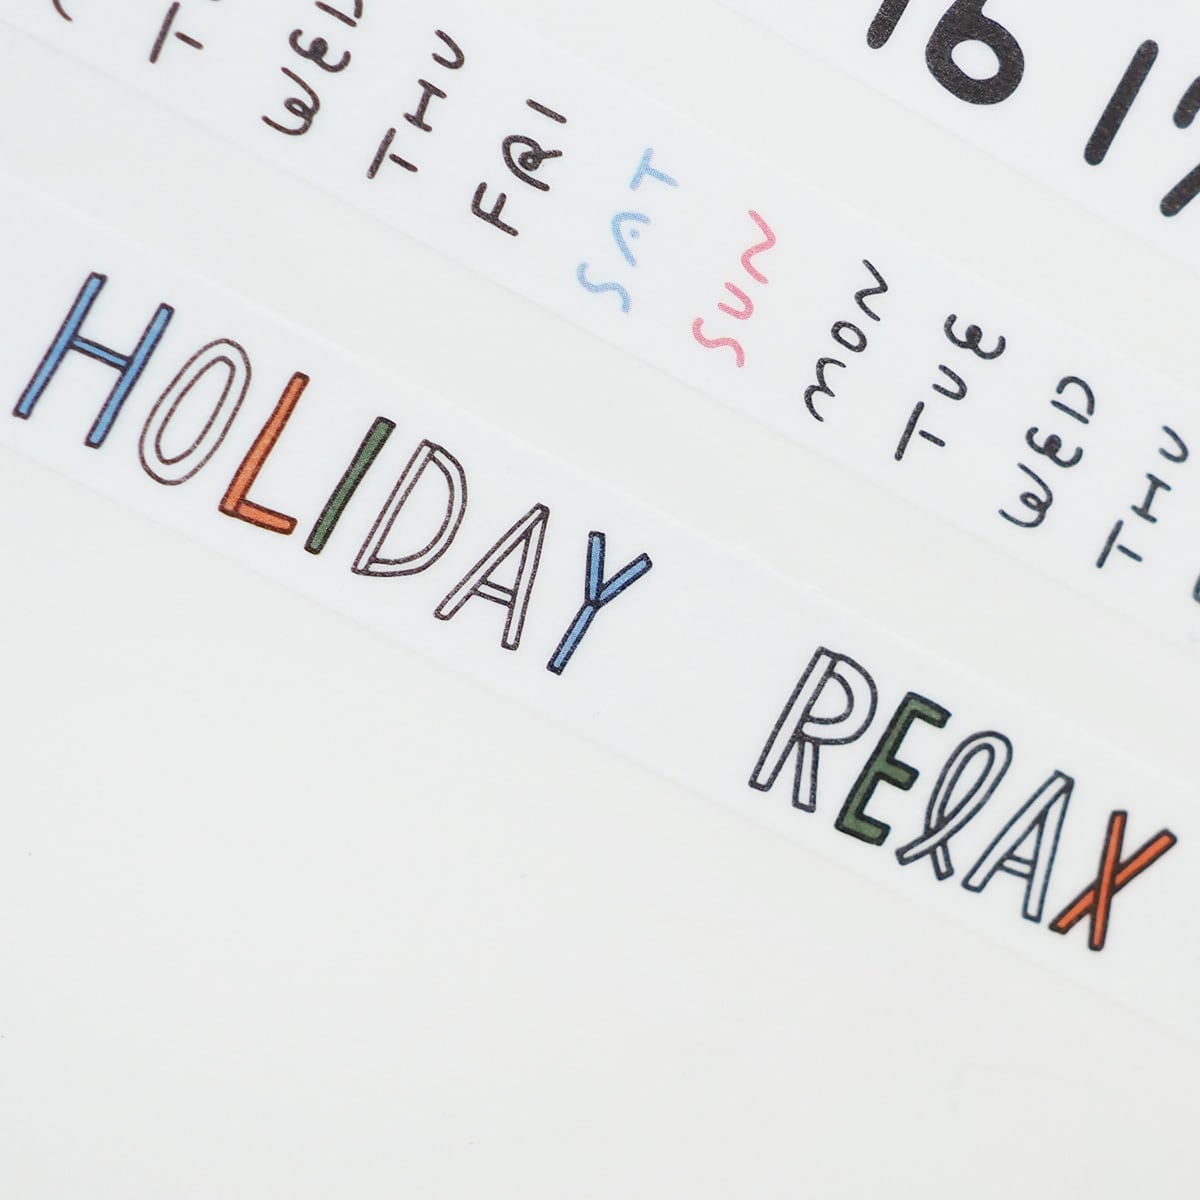 16 17
WED THU FRI SAT SUN MON TUE WED THU
HOLIDAY RElAX